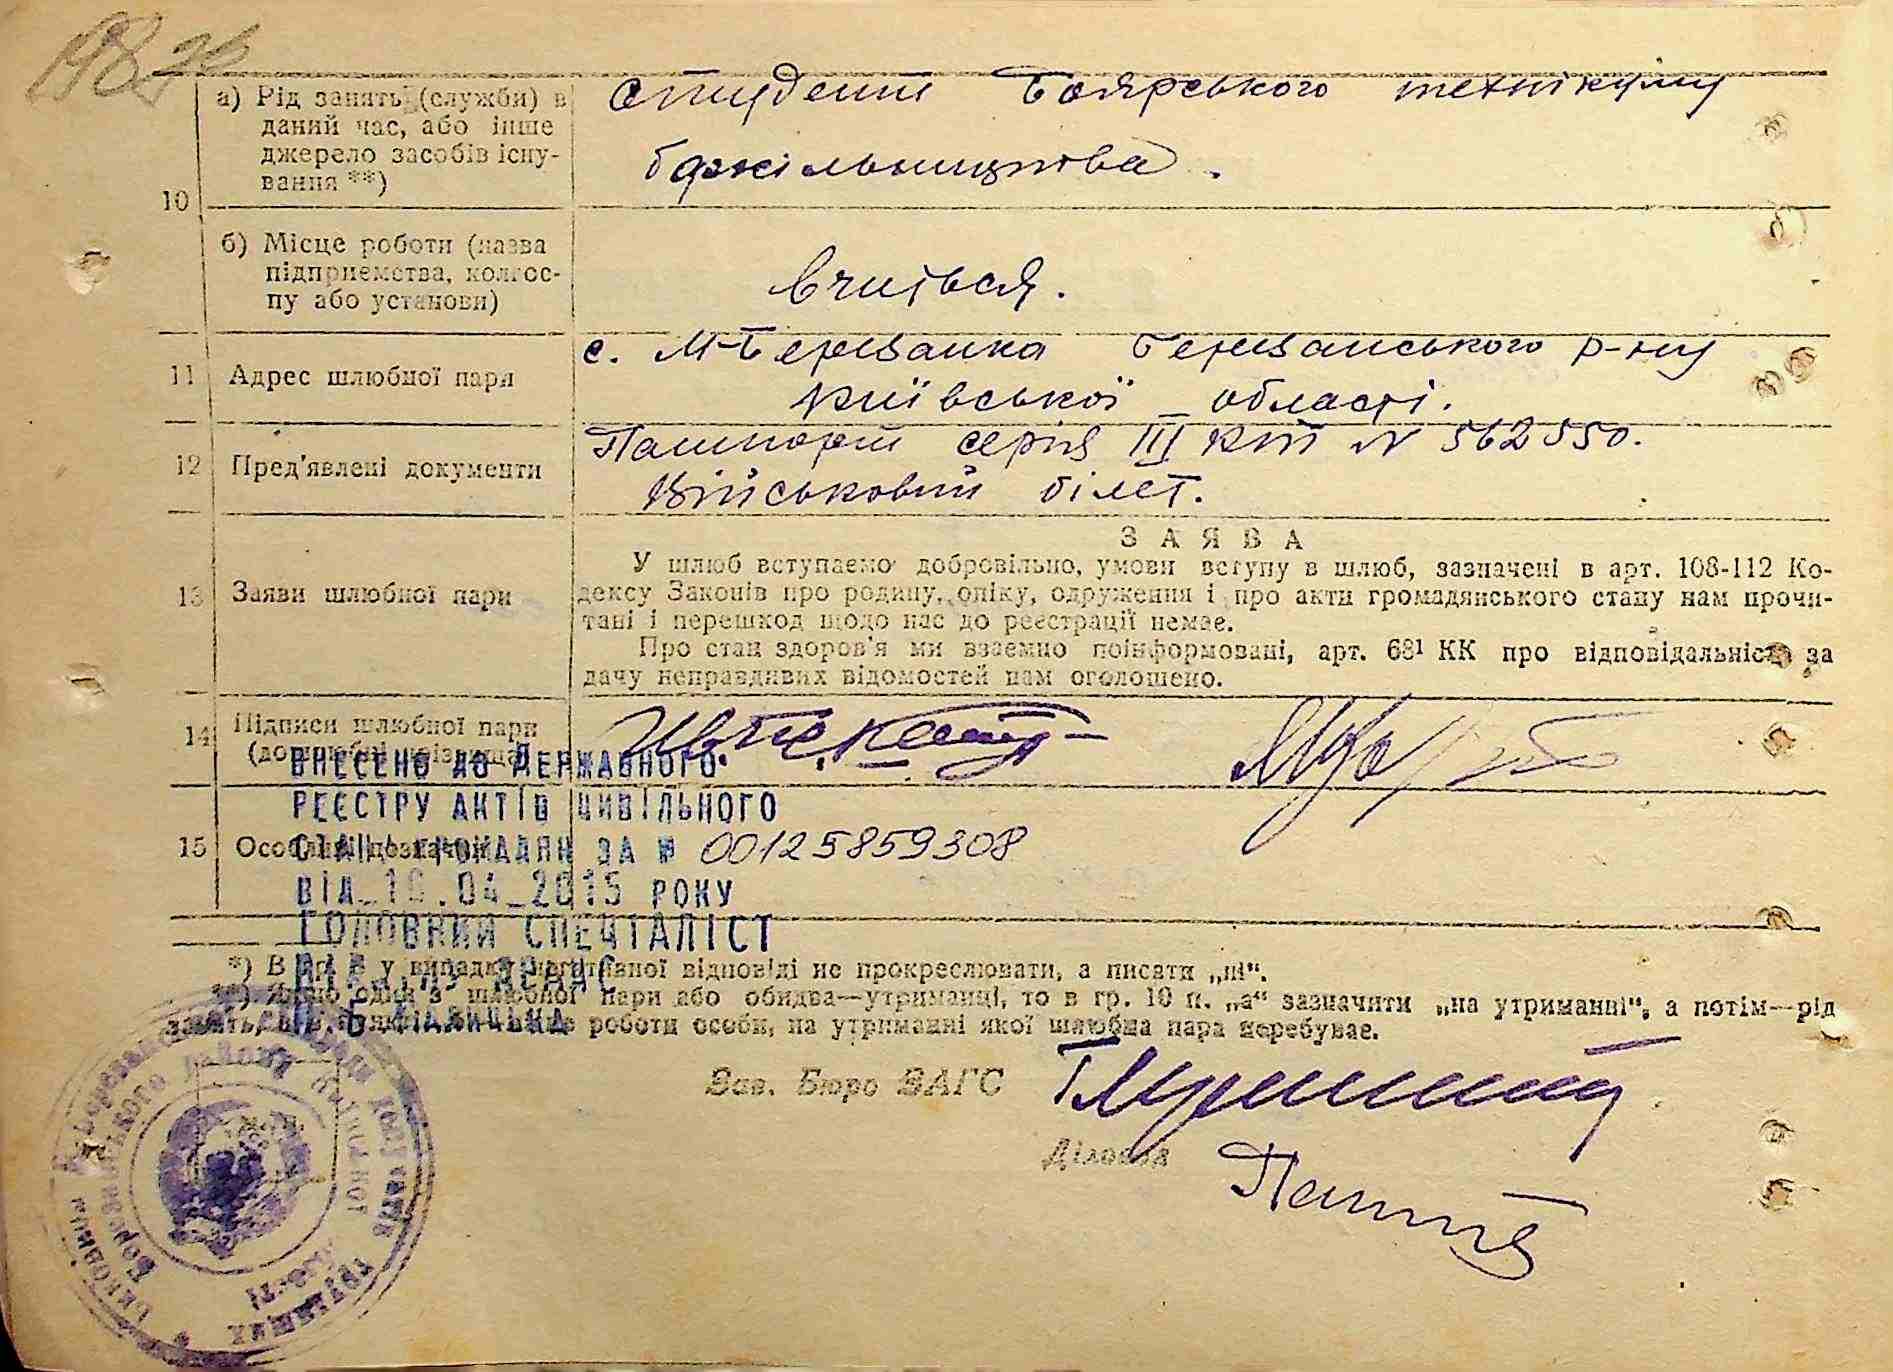 а) Рід занять (служби) в
даний час, або інше
джерело засобів існу-
вання **)
студент Боярського технікуму
бджільництва.
10
б) Місце роботи (назва
підприємства, колгос-
пу або установи)
вчиться.
11 Адрес шлюбної пари
с. М-Березанка Березанського р-ну
Київської області.
12 Пред'явлені документи
Пашпорт серія III КТ N 562550.
Військовий білет.
13 Заяви шлюбної пари
ЗАЯВА
У шлюб вступаємо добровільно, умови вступу в шлюб, зазначені в арт. 108-112 Ко-
дексу Законів про родину, опіку, одруження і про акти громадянського стану нам прочи-
тані і перешкод щодо нас до реєстрації немає.
Про стан здоров'я ми взаємно поінформовані, арт. 68¹ КК про відповідальність за
дачу неправдивих відомостей нам оголошено.
14 Підписи шлюбної пари
ВНЕСЕНО ДО ДЕРЖАВНОГО
РЕЄСТРУ АКТІВ ЦИВІЛЬНОГО
15
СТАНУ ГРОМАДЯН ЗА № 00125859308
ВІД 10.04.2015 РОКУ
ГОЛОВНИЙ СПЕЦІАЛІСТ
ВІДДІЛУ ДРАЦС
*) В гр. 8 у випадку негативної відповіді не прокреслювати, а писати „ні“.
**) Якщо одна з шлюбної пари або обидва—утриманці, то в гр. 10 п. „а“ зазначити „на утриманні“, а потім—рід
роботи особи, на утриманні якої шлюбна пара перебуває.
Зав. Бюро ЗАГС
Діловод